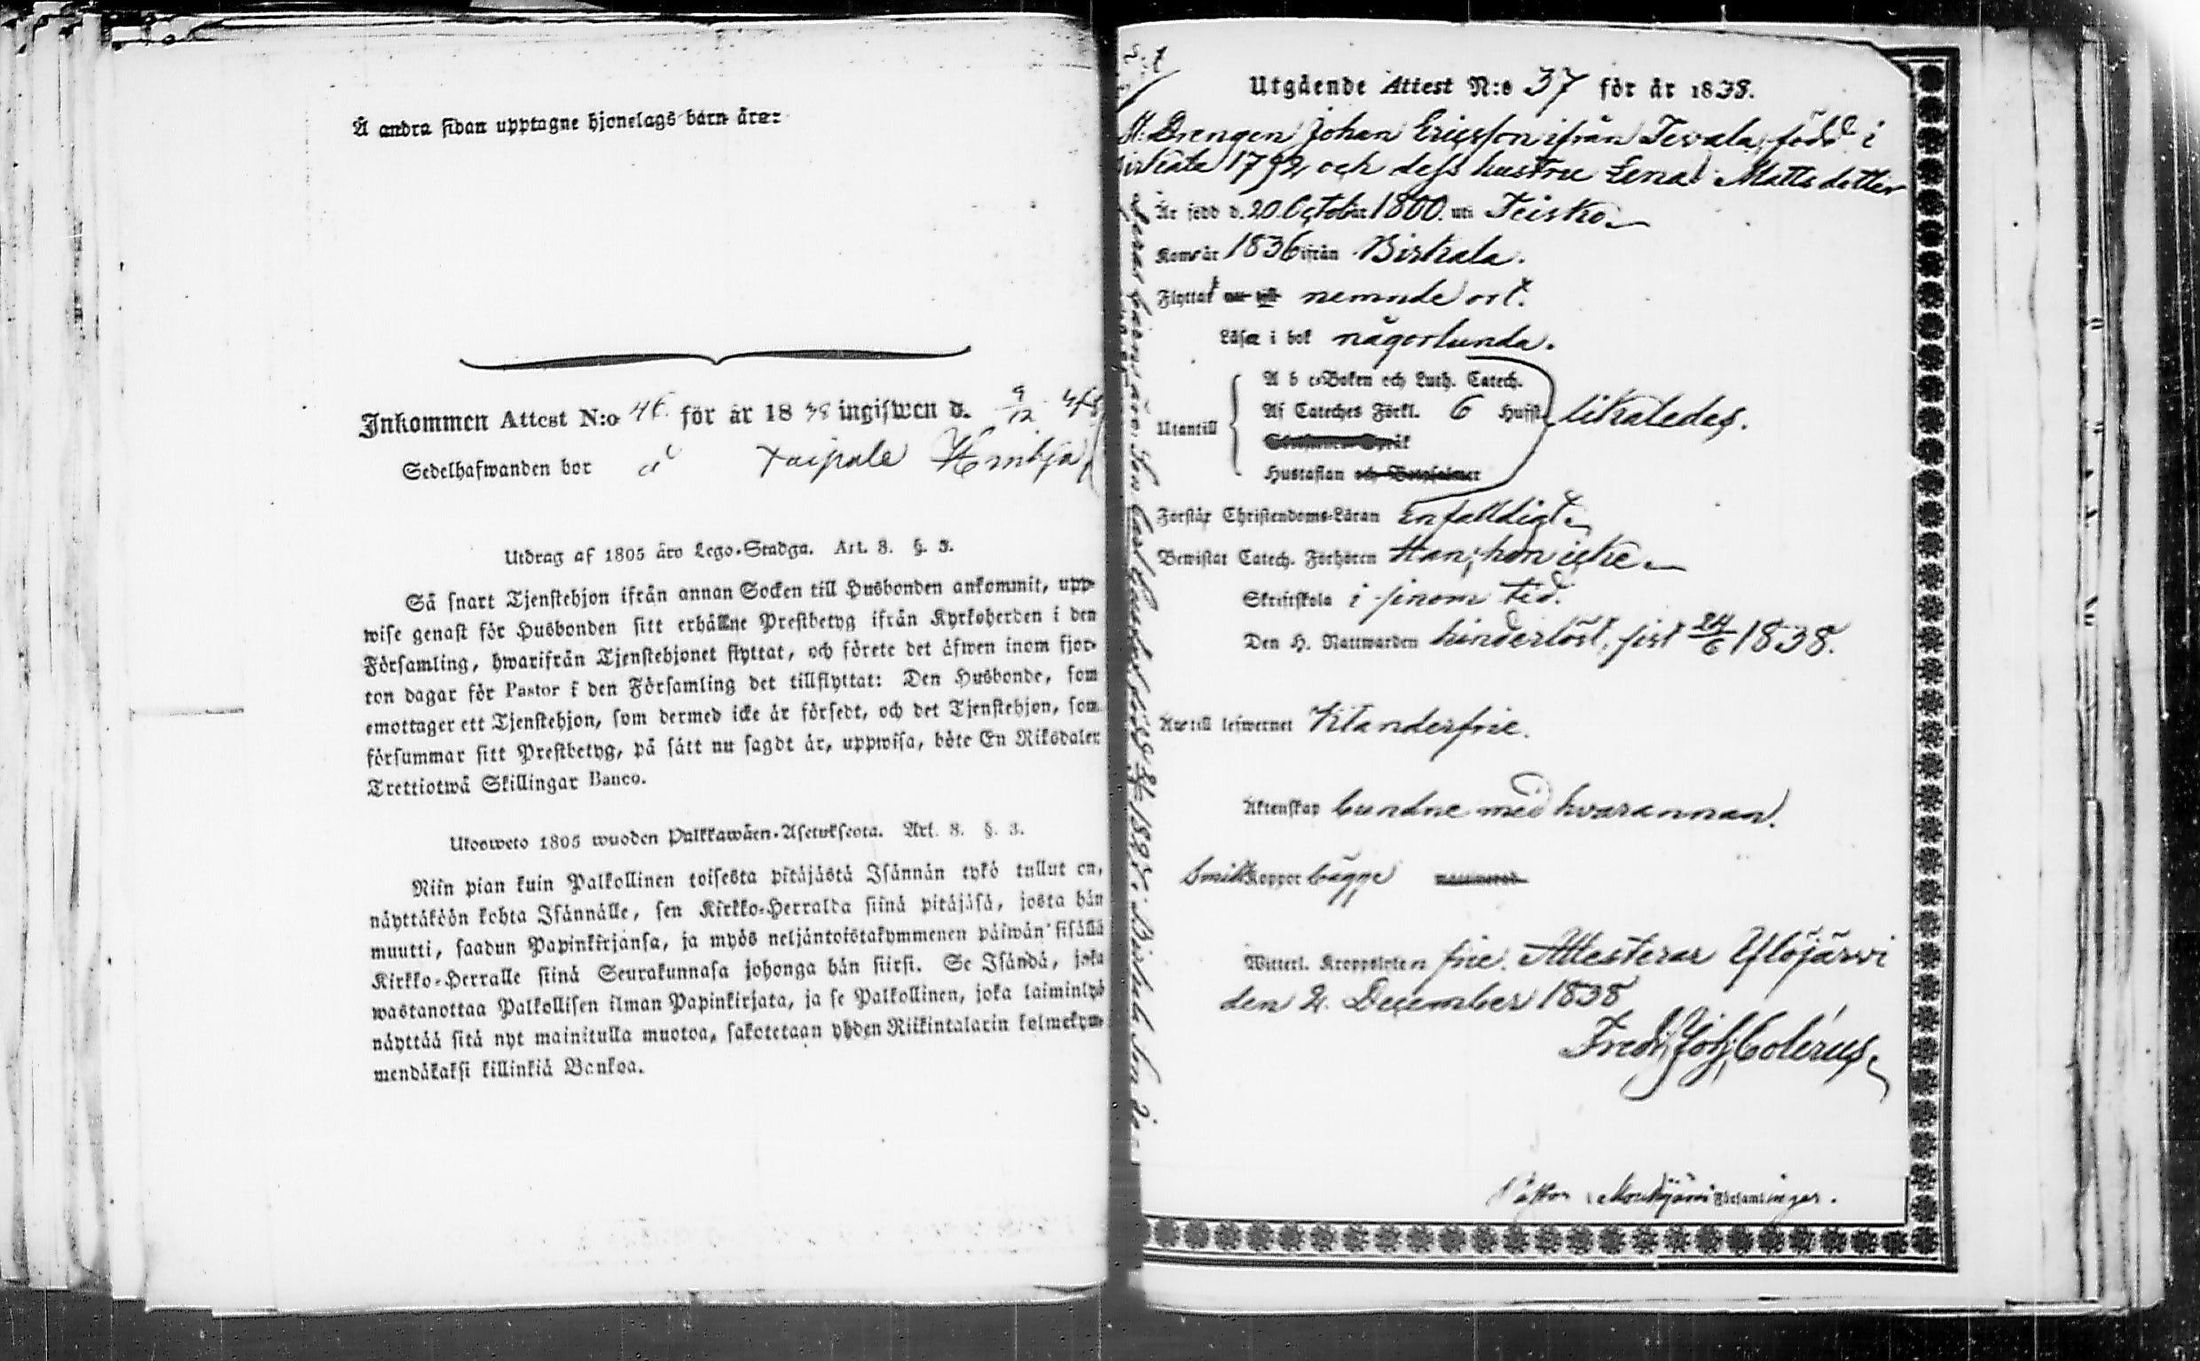 Å andra sidan upptagne hjonelags barn äro:
Inkommen Attest N:o 46 för år 1838 ingifwen d. 9/12 38
Sedelhafwanden bor å Taipale
Utdrag af 1805 års Lego-Stadga. Art. 8. §. 3.
Så snart Tjenstehjon ifrån annan Socken till Husbonden ankommit, upp-
wise genast för Husbonden sitt erhållne Prestbetyg ifrån Kyrkoherden i den
Församling, hwarifrån Tjenstehjonet flyttat, och förete det äfwen inom fjor-
ton dagar för Pastor i den Församling det tillflyttat: Den Husbonde, som
emottager ett Tjenstehjon, som dermed icke är försedt, och det Tjenstehjon, som
försummar sitt Prestbetyg, på sätt nu sagdt är, uppwisa, böte En Riksdaler
Trettiotwå Skillingar Banco.
Ulosweto 1805 wuoden Palkkawäen-Asetuksesta. Art. 8. §. 3.
Niin pian kuin Palkollinen toisesta pitäjästä Isännän tykö tullut on,
näyttäköön kohta Isännälle, sen Kirkko-Herralda siinä pitäjäsä, josta hän
muutti, saadun Papinkirjansa, ja myös neljäntoistakymmenen päiwän sisällä
Kirkko-Herralle siinä Seurakunnasa johonga hän siirsi. Se Isändä, joka
wastanottaa Palkollisen ilman Papinkirjata, ja se Palkollinen, joka laiminlyö
näyttää sitä nyt mainitulla muotoa, sakotetaan yhden Riikintalarin kolmekym-
mendäkaksi killinkiä Bankoa.
Utgående Attest N:o 37 för år 1838.
Drengen Johan Ericsson ifrån Tevala, född i
Birkala 1792, och dess hustru Lena Matts dotter
Är född d. 20 October 1800. uti Teisko
Kom år 1836 ifrån Birkala.
Flyttat nemnde ort.
Läsa i bok någorlunda.
Utantill
A b c-Boken och Luth. Catech.
Af Cateches Förkl. 6 Hufst. likaledes.
Hustaflan
Förstår Christendoms-Läran Enfalldigt
Bewistat Catech. Förhören Han, hon icke
Skriftskola i sinom tid.
Den H. Nattwarden hinderlöst, sist 24/6 1838.
Är till lefwernet Klanderfrie.
Äktenskap bundne med hvarannan.
Smittkoppor bägge
Witterl. Kroppslyten frie. Attesterar Ylöjärvi
den 2. December 1838
Fredr. Joh. Colérus
Pastor i Församlingar.